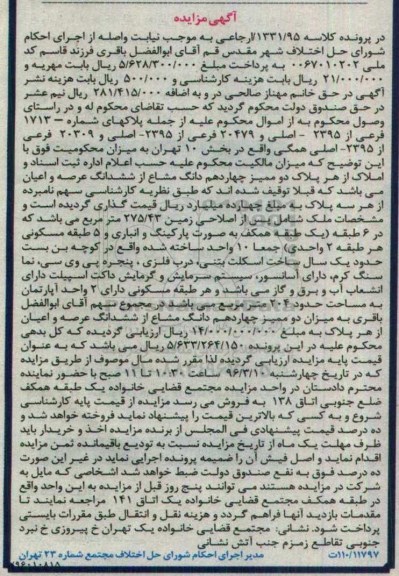 آگهی مزایده
در پرونده کلاسه ۱۳۳۱/۹۵/ارجاعی به موجب نیابت واصله از اجرای احکام
شورای حل اختلاف شهر مقدس قم آقای ابوالفضل باقری فرزند قاسم کد
ملی ۰۰۶۷۰۱۰۲۰۲ به پرداخت مبلغ ۵/۶۲۸/۳۰۰/۰۰۰ ریال بابت مهریه و
۲۱/۰۰۰/۰۰۰ ریال بابت هزینه کارشناسی و ۵۰۰/۰۰۰ ریال بابت هزینه نشر
آگهی در حق خانم مهناز صالحی در و به اضافه ۲۸۱/۴۱۵/۰۰۰ ریال نیم عشر
در حق صندوق دولت محکوم گردید که حسب تقاضای محکوم له و در راستای
وصول محکوم به از اموال محکوم علیه از جمله پلاکهای شماره – ۱۷۱۳
فرعی از ۲۳۹۵ - اصلی و ۲۰۴۷۹ فرعی از ۲۳۹۵- اصلی و ۲۰۳۰۹ فرعی
از ۲۳۹۵- اصلی همگی واقع در بخش ۱۰ تهران به میزان محکومیت فوق با
این توضیح که میزان مالکیت محکوم علیه حسب اعلام اداره ثبت اسناد و
املاک از هر پلاک دو ممیز چهاردهم دانگ مشاع از ششدانگ عرصه و اعیان
می باشد که قبلا توقیف شده اند که طبق نظریه کارشناسی سهم نامبرده
از هر سه پلاک به مبلغ چهارده میلیارد ریال قیمت گذاری گردیده است و
مشخصات ملک شامل پس از اصلاحی زمین ۲۷۵/۴۳ متر مربع می باشد که
در ۶ طبقه (یک طبقه همکف به صورت پارکینگ و انباری و ۵ طبقه مسکونی
هر طبقه ۲ واحدی) جمعا ۱۰ واحد ساخته شده واقع در کوچه بن بست
حدود یک سال ساخت اسکلت بتنی، درب فلزی، پنجره پی وی سی، نما
سنگ کرم، دارای آسانسور، سیستم سرمایش و گرمایش داکت اسپیلت دارای
انشعاب آب و برق و گاز می باشد و هر طبقه مسکونی دارای ۲ واحد آپارتمان
به مساحت حدود ۲۰۴ متر مربع می باشد در مجموع سهم آقای ابوالفضل
باقری به میزان دو ممیز چهاردهم دانگ مشاع از ششدانگ عرصه و اعیان
از هر پلاک به مبلغ ۱۴/۰۰۰/۰۰۰/۰۰۰ ریال ارزیابی گردیده که کل بدهی
محکوم علیه در این پرونده ۵/۶۳۳/۲۶۴/۱۵۰ ریال می باشد که به عنوان
قیمت پایه مزایده ارزیابی گردیده لذا مقرر شده مال موصوف از طریق مزایده
که در تاریخ چهارشنبه ۹۶/۳/۱۰ ساعت ۱۰:۳۰ تا ۱۱ صبح با حضور نماینده
محترم دادستان در واحد مزایده مجتمع قضایی خانواده یک طبقه همکف
ضلع جنوبی اتاق ۱۳۸ به فروش می رسد مزایده از قیمت پایه کارشناسی
شروع و به کسی که بالاترین قیمت را پیشنهاد نماید فروخته خواهد شد و
ده درصد قیمت پیشنهادی فی المجلس از برنده مزایده اخذ و خریدار باید
ظرف مهلت یک ماه از تاریخ مزایده نسبت به تودیع باقیمانده ثمن مزایده
اقدام نماید و اصل فیش آن را ضمیمه پرونده اجرایی نماید در غیر این صورت
ده درصد فوق به نفع صندوق دولت ضبط خواهد شد اشخاصی که مایل به
شرکت در مزایده هستند می توانند پنج روز قبل از مزایده به این واحد واقع
در طبقه همکف مجتمع قضایی خانواده یک اتاق ۱۴۱ مراجعه نمایند تا
مقدمات بازدید آنها فراهم گردد و هزینه نقل و انتقال طبق مقررات بایستی
پرداخت شود. نشانی: مجتمع قضایی خانواده یک تهران خ پیروزی خ نبرد
جنوبی تقاطع زمزم جنب آتش نشانی
۱۱۰/۱۱۷۹۷/ت مدیر اجرای احکام شورای حل اختلاف مجتمع شماره ۲۳ تهران